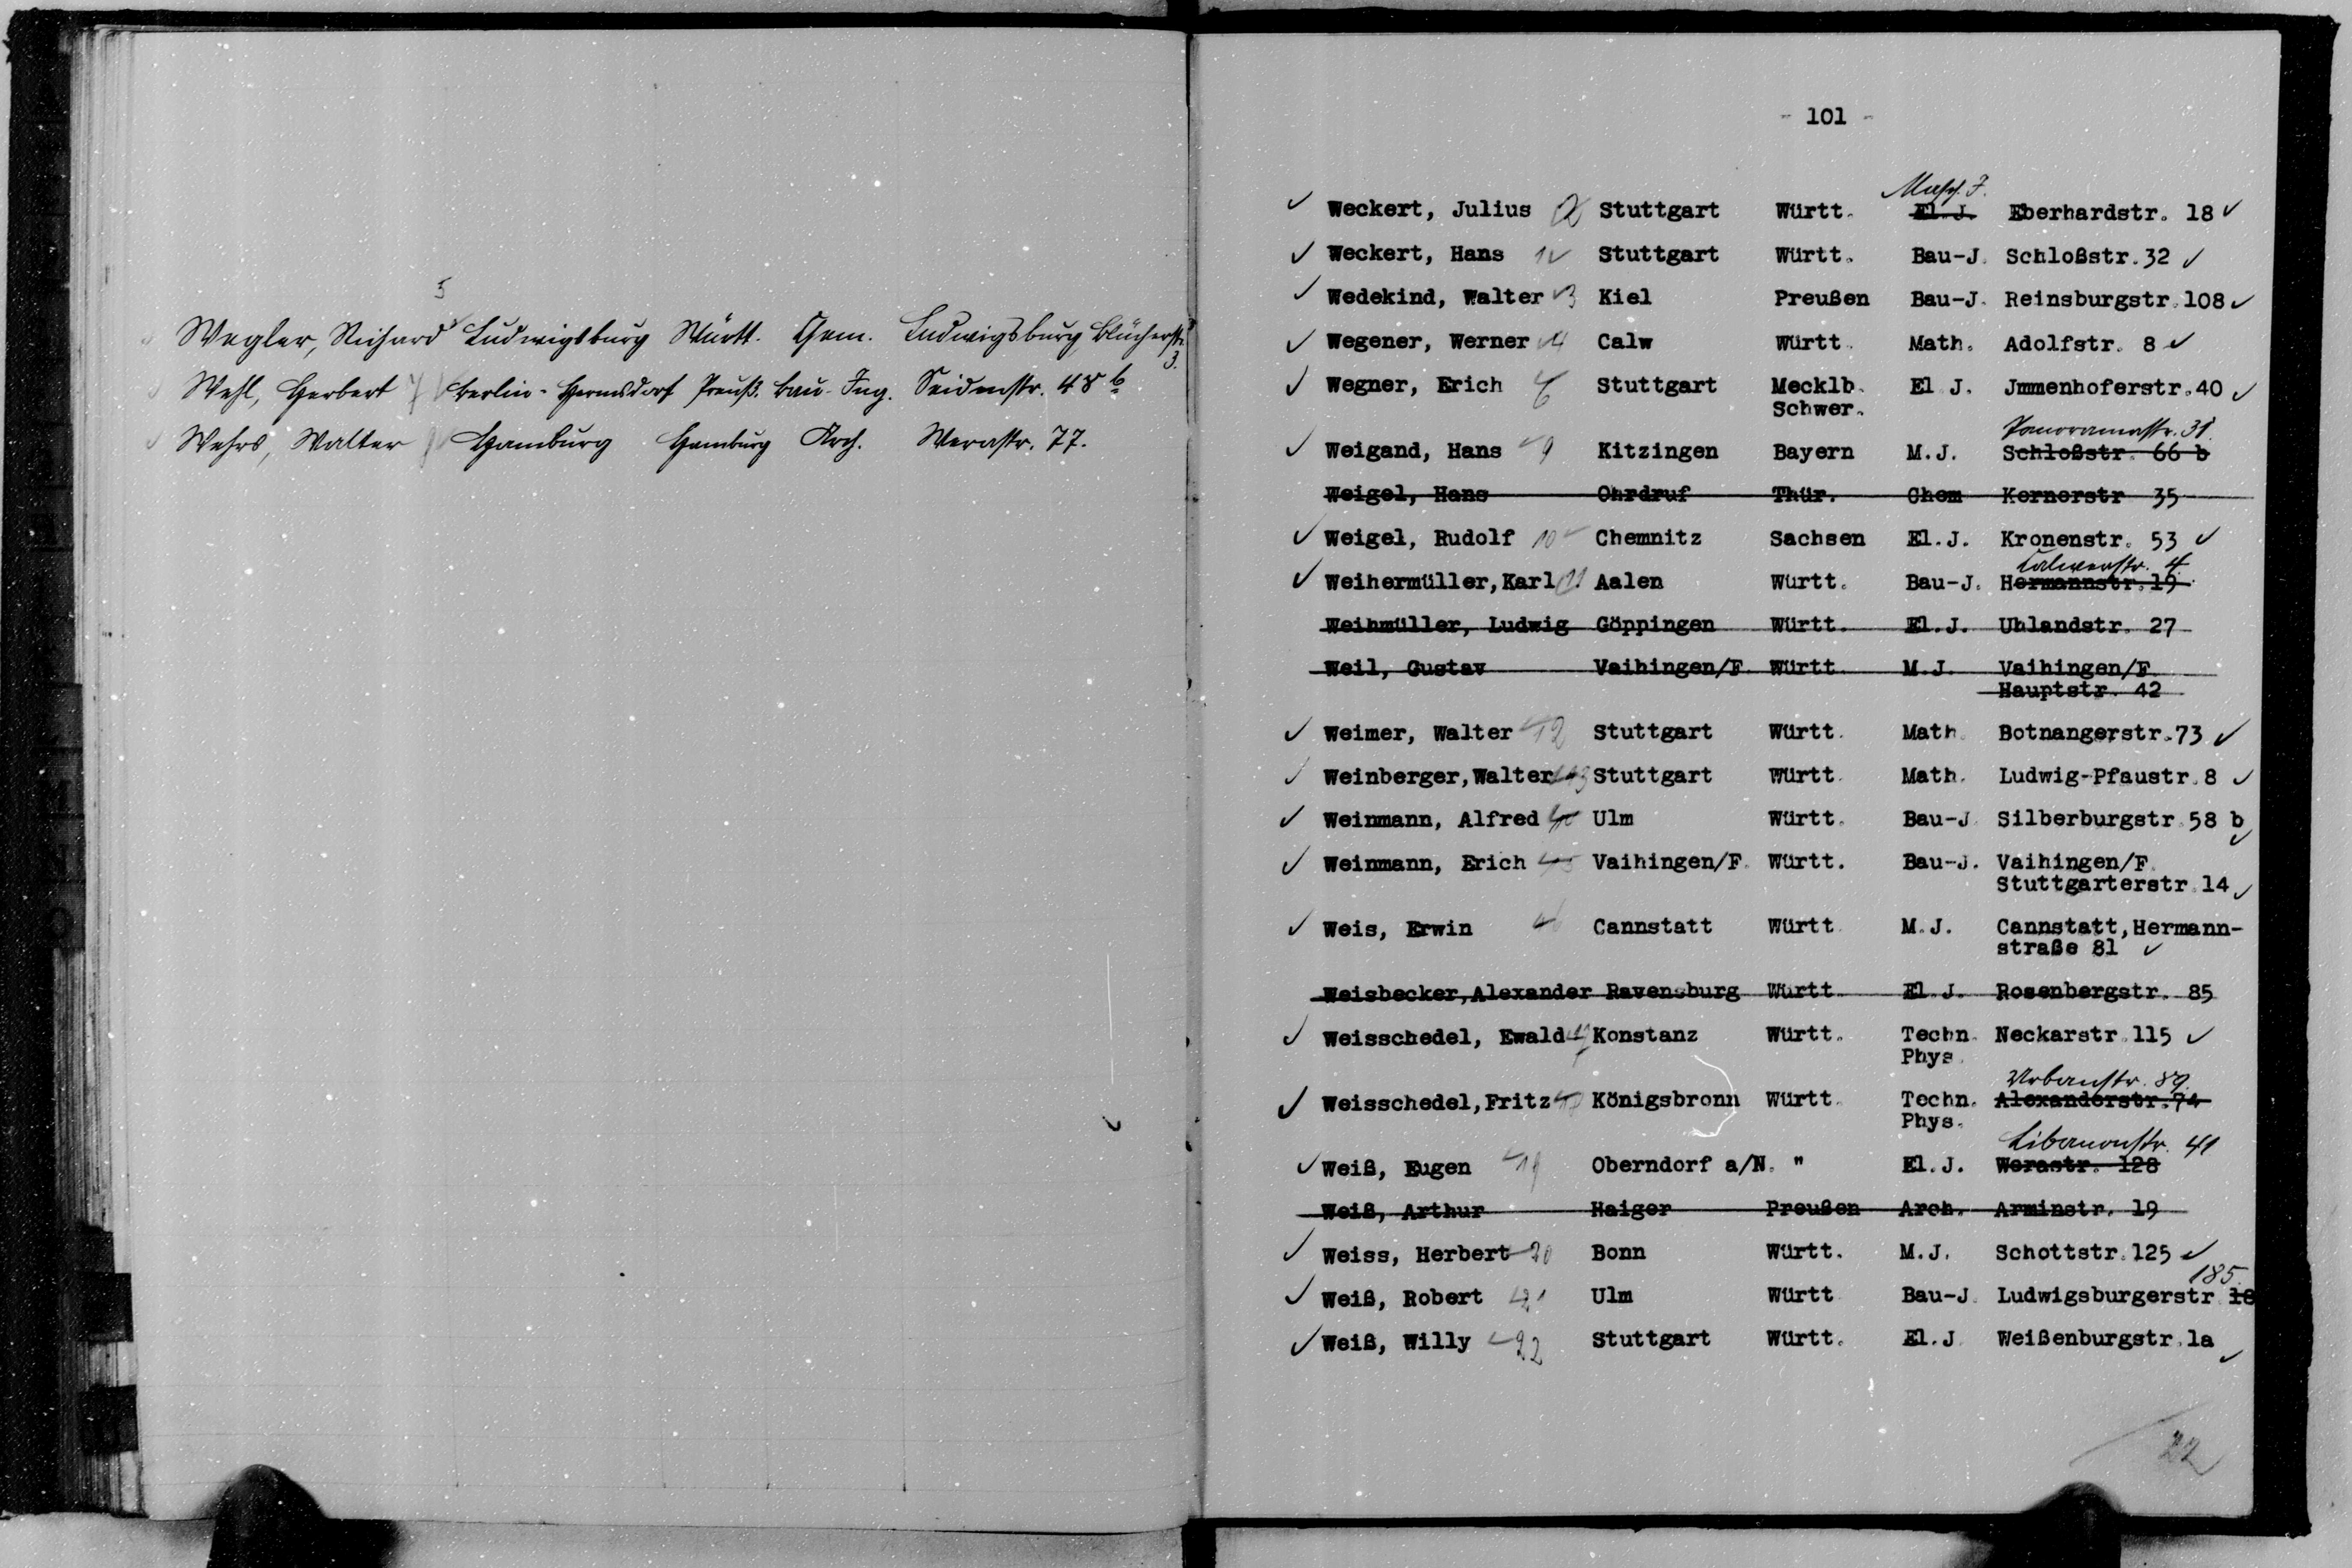 5
Wegler, Richard Ludwigsburg Württ. Chem. Ludwigsburg, Blücherstr.
3.
Wehl, Herbert 7 Berlin-Hermsdorf Preuß. Bau-Ing. Seidenstr. 48 b
Wehrs, Walter 8 Hamburg Hamburg Arch. Werastr. 77.
- 101 -
Masch. J.
Weckert, Julius 2 Stuttgart Württ. El.J. Eberhardstr. 18
Weckert, Hans 1 Stuttgart Württ. Bau-J. Schloßstr.32
Wedekind, Walter 3 Kiel Preußen Bau-J. Reinsburgstr.108
Wegener, Werner 4 Calw Württ. Math. Adolfstr. 8
Wegner, Erich 6 Stuttgart Mecklb. El J. Jmmenhoferstr.40
Schwer.
Panoramastr. 31.
Weigand, Hans 9 Kitzingen Bayern M.J. Schloßstr. 66 b
Weigel, Hans Ohrdruf Thür. Chem Kernerstr 35
Weigel, Rudolf 10 Chemnitz Sachsen El.J. Kronenstr. 53
Calwerstr. 4.
Weihermüller,Karl 11 Aalen Württ. Bau-J. Hermannstr.19
Weihmüller, Ludwig Göppingen Württ. El.J. Uhlandstr. 27
Weil, Gustav Vaihingen/F. Württ. M.J. Vaihingen/F.
Hauptstr. 42
Weimer, Walter 12 Stuttgart Württ. Math. Botnangerstr.73
Weinberger,Walter 13 Stuttgart Württ. Math. Ludwig-Pfaustr.8
Weinmann, Alfred Ulm Württ. Bau-J. Silberburgstr.58 b
Weinmann, Erich 15 Vaihingen/F. Württ. Bau-J. Vaihingen/F.
Stuttgarterstr.14
Weis, Erwin Cannstatt Württ. M.J. Cannstatt,Hermann-
straße 81
Weisbecker,Alexander Ravensburg Württ. El.J. Rosenbergstr. 85
Weisschedel, Ewald Konstanz Württ. Techn. Neckarstr.115
Phys.
Urbanstr. 89.
Weisschedel,Fritz Königsbronn Württ. Techn. Alexanderstr.74
Phys.
Libanonstr. 41
Weiß, Eugen 19 Oberndorf a/N. " El.J. Werastr. 128
Weiß, Arthur Haiger Preußen Arch. Arminstr. 19
Weiss, Herbert 20 Bonn Württ. M.J. Schottstr.125
185.
Weiß, Robert 21 Ulm Württ Bau-J. Ludwigsburgerstr 18
Weiß, Willy 22 Stuttgart Württ. El.J. Weißenburgstr.1a
22